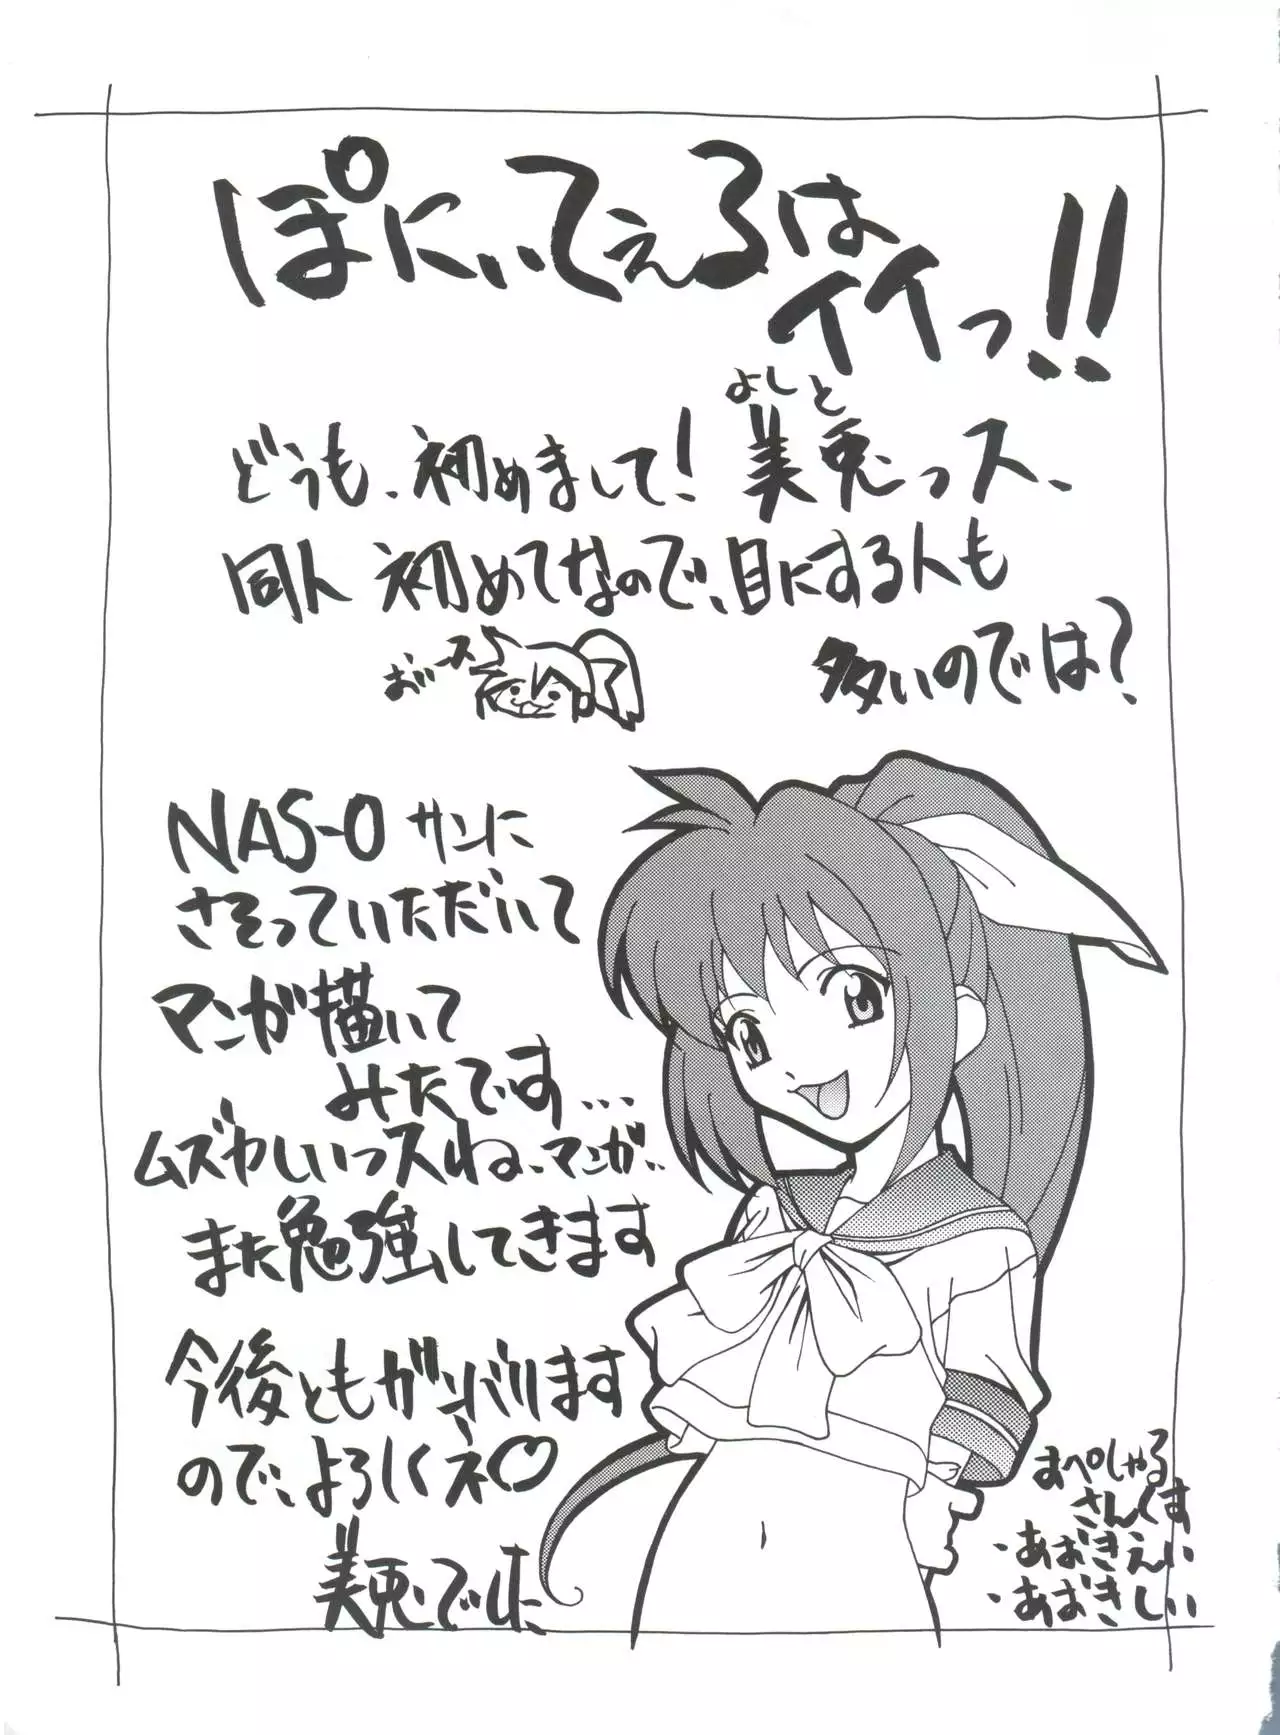 ぽにぃてぇるは
イイっ!!
よしと
どうも、初めまして!美兎っス、
同人初めてなので、目にする人も
多いのでは?
おいース
NAS-Oサンに
さそっていただいて
マンガ描いて
みたです...
ムズカしいっスね、マンガ..
また勉強してきます
今後ともガンバリます
ので、よろしくネ♡
美兎でした
すぺしゃる
さんくす
・あおきえい
・あおきしい